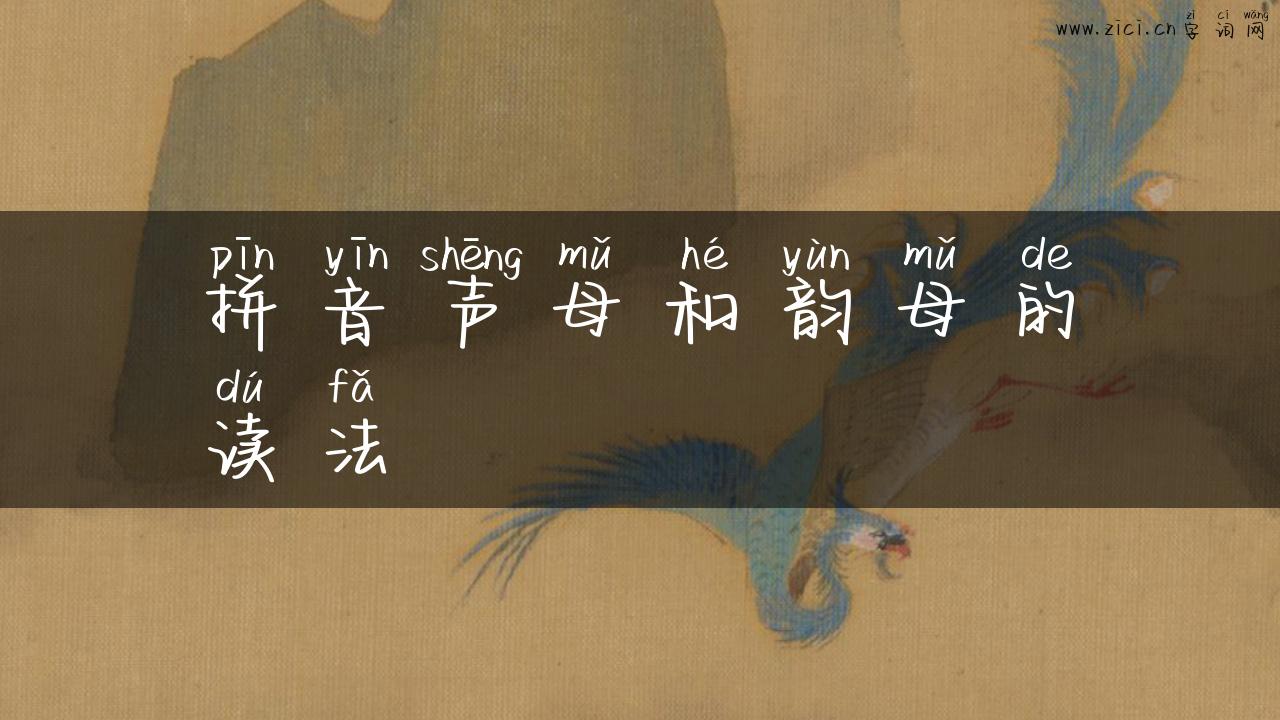 zì cí wǎng
www.zici.cn 字 词 网
pīn yīn shēng mǔ hé yùn mǔ de
拼 音 声 母 和 韵 母 的
dú fǎ
读 法